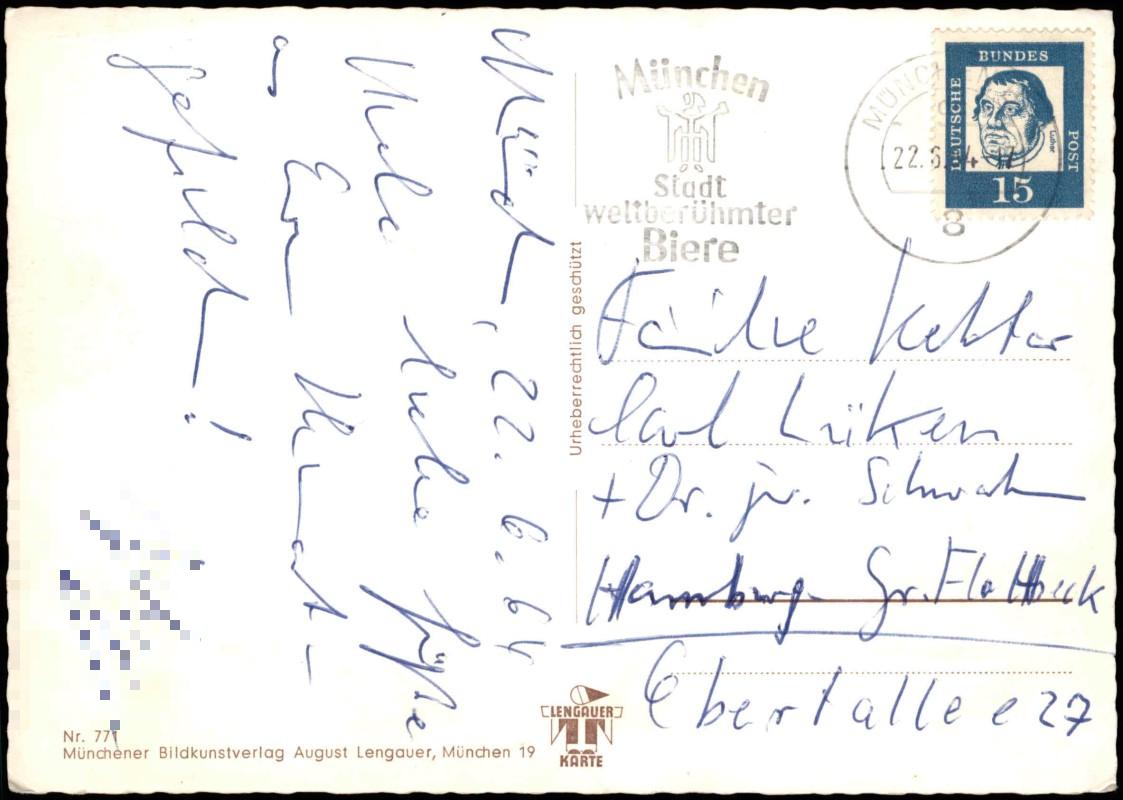 München, 22. 6. 64
Viele liebe Grüße
an Euer
Gefild!
München
Stadt
weltberühmter
Biere
MÜNCHEN
22. 6. 64
8
DEUTSCHE
BUNDES
POST
Luther
15
Urheberrechtlich geschützt
Familie
Carl Lüken
+ Dr. jur.
Hamburg Gr. Flottbeck
Ebertallee 27
LENGAUER
KARTE
Nr. 771
Münchener Bildkunstverlag August Lengauer, München 19